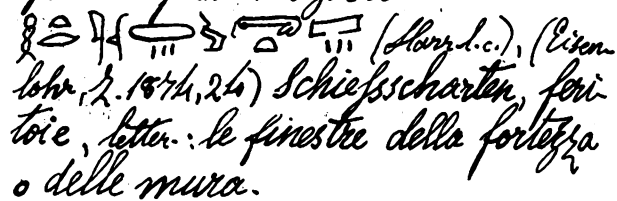 (Harr. l.c.), (Eisen-
lohr, Z. 1874, 24) Schießscharten, feri-
toie, letter.: le finestre della fortezza
o delle mura.